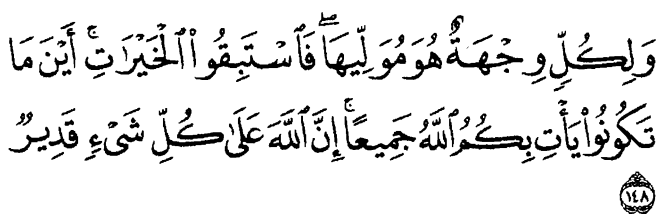 وَلِكُلٍّ وِجْهَةٌ هُوَ مُوَلِّيهَا ۖ فَٱسْتَبِقُوا۟ ٱلْخَيْرَٰتِ ۚ أَيْنَ مَا
تَكُونُوا۟ يَأْتِ بِكُمُ ٱللَّهُ جَمِيعًا ۚ إِنَّ ٱللَّهَ عَلَىٰ كُلِّ شَىْءٍ قَدِيرٌ
١٤٨